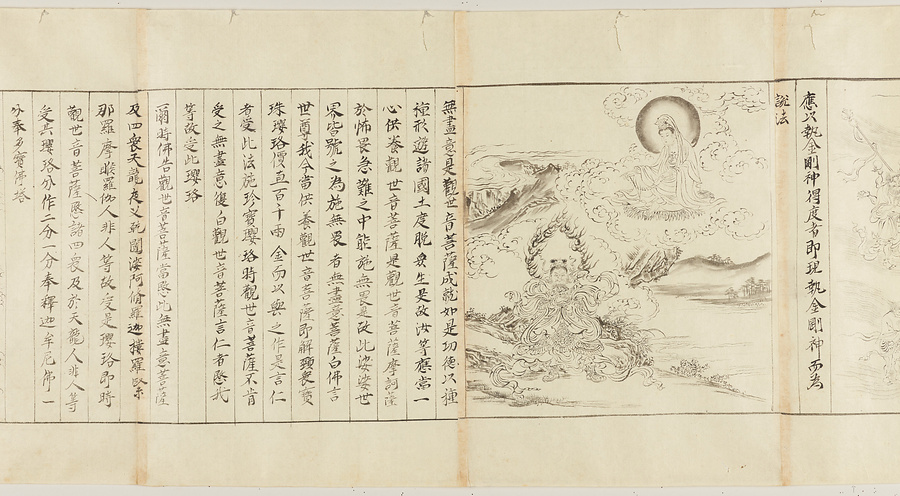 應以執金剛神得度者即現執金剛神而為
說法
無盡意是觀世音菩薩成就如是功德以種
種形遊諸國土度脫眾生是故汝等應當一
心供養觀世音菩薩是觀世音菩薩摩訶薩
於怖畏急難之中能施無畏是故此娑婆世
界皆號之為施無畏者無盡意菩薩白佛言
世尊我今當供養觀世音菩薩即解頸眾寶
珠瓔珞價直百千兩金而以與之作是言仁
者受此法施珍寶瓔珞時觀世音菩薩不肯
受之無盡意復白觀世音菩薩言仁者愍我
等故受此瓔珞
爾時佛告觀世音菩薩當愍此無盡意菩薩
及四眾天龍夜叉乾闥婆阿脩羅迦樓羅緊
那羅摩睺羅伽人非人等故受是瓔珞即時
觀世音菩薩愍諸四眾及於天龍人非人等
受其瓔珞分作二分一分奉釋迦牟尼佛一
分奉多寶佛塔